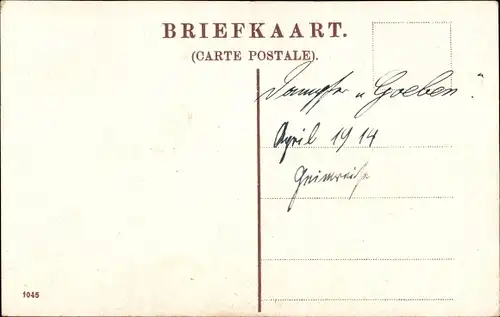 BRIEFKAART.
(CARTE POSTALE).
Dampfer „Goeben".
April 1914
Heimreise
1045